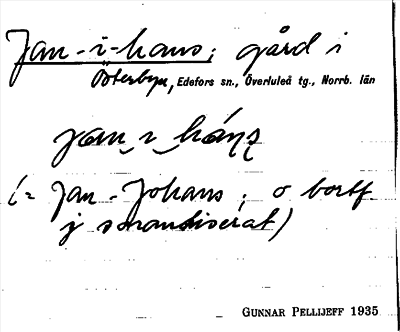 Jan-i-hans; gård i
Österbyn, Edefors sn., Överluleå tg., Norrb. län
jan ı hánȥ
(= Jan-Johans; o bortf.
j sonantiserat)
GUNNAR PELLIJEFF 1935